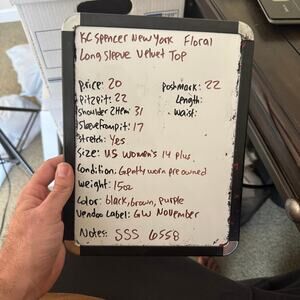 KC Spencer New York Floral
Long Sleeve Velvet Top
Price: 20
Poshmark: 22
Pit2pit: 22
Length:
Shoulder2Hem: 31
Waist:
Sleevefrompit: 17
Stretch: Yes
Size: US Women's 14 Plus
Condition: Gently worn preowned
Weight: 15oz
Color: black, brown, purple
Vendoo Label: GW November
Notes: SSS 6558